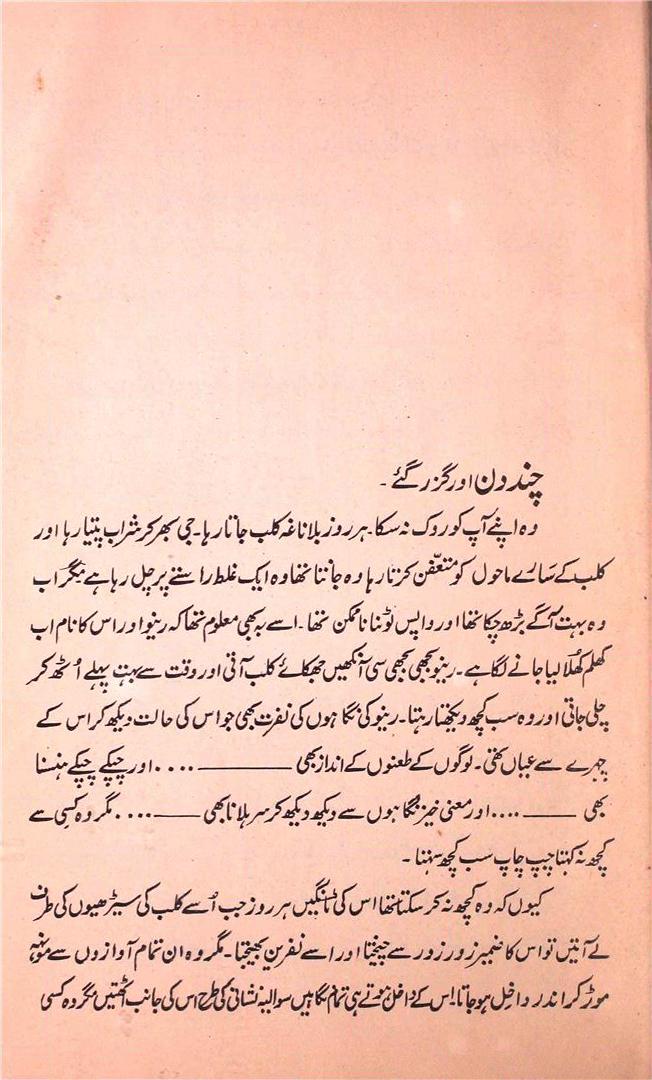 چند دن اور گزر گئے ۔
وہ اپنے آپ کو روک نہ سکا۔ ہر روز بلاناغہ کلب جاتا رہا۔ جی بھر کر شراب پیتا رہا اور
کلب کے سارے ماحول کو متعفّن کرتا رہا وہ جانتا تھا وہ ایک غلط راستے پر چل رہا ہے مگر اب
وہ بہت آگے بڑھ چکا تھا اور واپس لوٹنا ناممکن تھا۔ اسے یہ بھی معلوم تھا کہ رینو اور اس کا نام اب
کھلم کھُلا لیا جانے لگا ہے۔ رینو بجھی بجھی سی آنکھیں جھکائے کلب آتی اور وقت سے بہت پہلے اُٹھ کر
چلی جاتی اور وہ سب کچھ دیکھتا رہتا۔ رینو کی نگاہوں کی نفرت بھی جو اس کی حالت دیکھ کر اس کے
چہرے سے عیاں تھی۔ لوگوں کے طعنوں کے انداز بھی ــــــــــــ .... اور چپکے چپکے ہنسنا
بھی ــــــــ .... اور معنی خیز نگاہوں سے دیکھ دیکھ کر سر ہلانا بھی ــــــــ .... مگر وہ کسی سے
کچھ نہ کہتا چپ چاپ سب کچھ سہتا ۔
کیوں کہ وہ کچھ نہ کر سکتا تھا اس کی ٹانگیں ہر روز جب اُسے کلب کی سیڑھیوں کی طرف
لے آتیں تو اس کا ضمیر زور زور سے چیختا اور اسے نفرین بھیجتا۔ مگر وہ ان تمام آوازوں سے مونہہ
موڑ کر اندر داخل ہو جاتا۔ اس کے داخل ہوتے ہی تمام نگاہیں سوالیہ نشانی کی طرح اس کی جانب اٹھتیں مگر وہ کسی